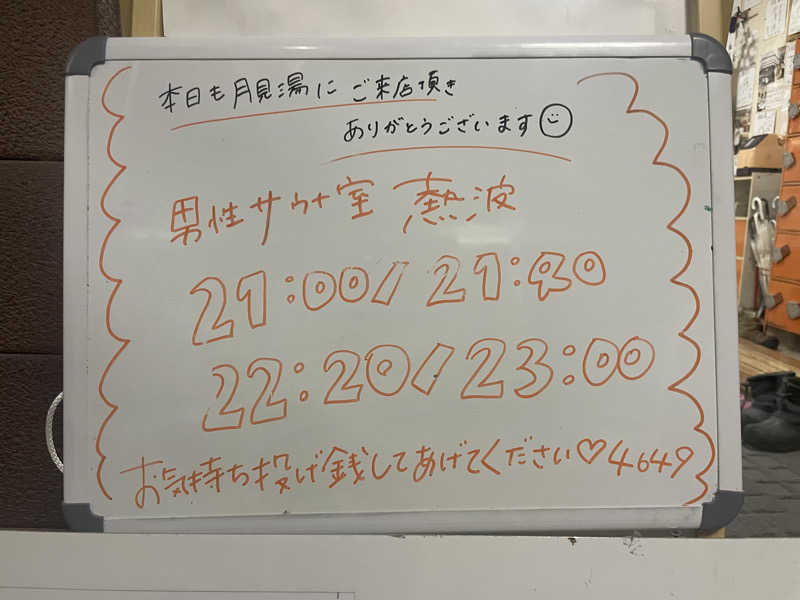 本日も月見湯にご来店頂き
ありがとうございます
男性サウナ室 熱波
21:00/21:40
22:20/23:00
お気持ち投げ銭してあげてください♡4649